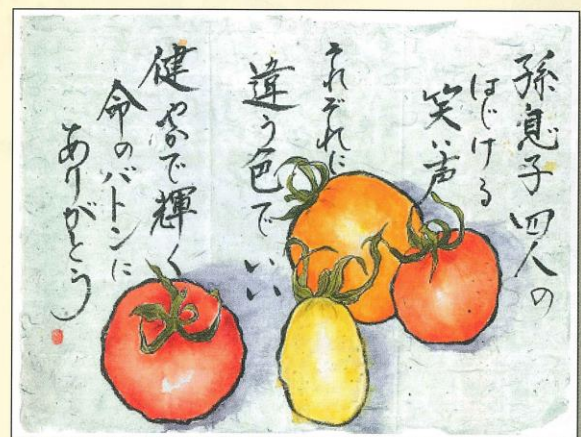 孫息子四人の
はじける
笑い声
それぞれに
違う色でいい
健やかで輝く
命のバトンに
ありがとう